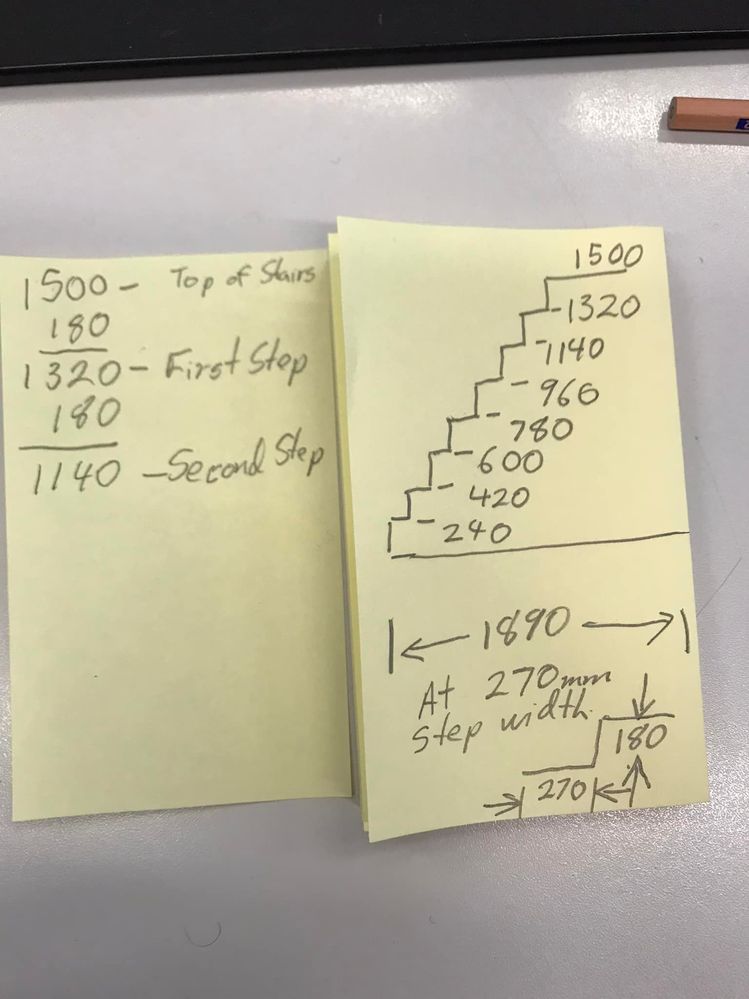 1500 - Top of Stairs
180
1320 - First Step
180
1140 - Second Step
1500
1320
1140
960
780
600
420
240
1890
At 270mm
Step width.
180
270